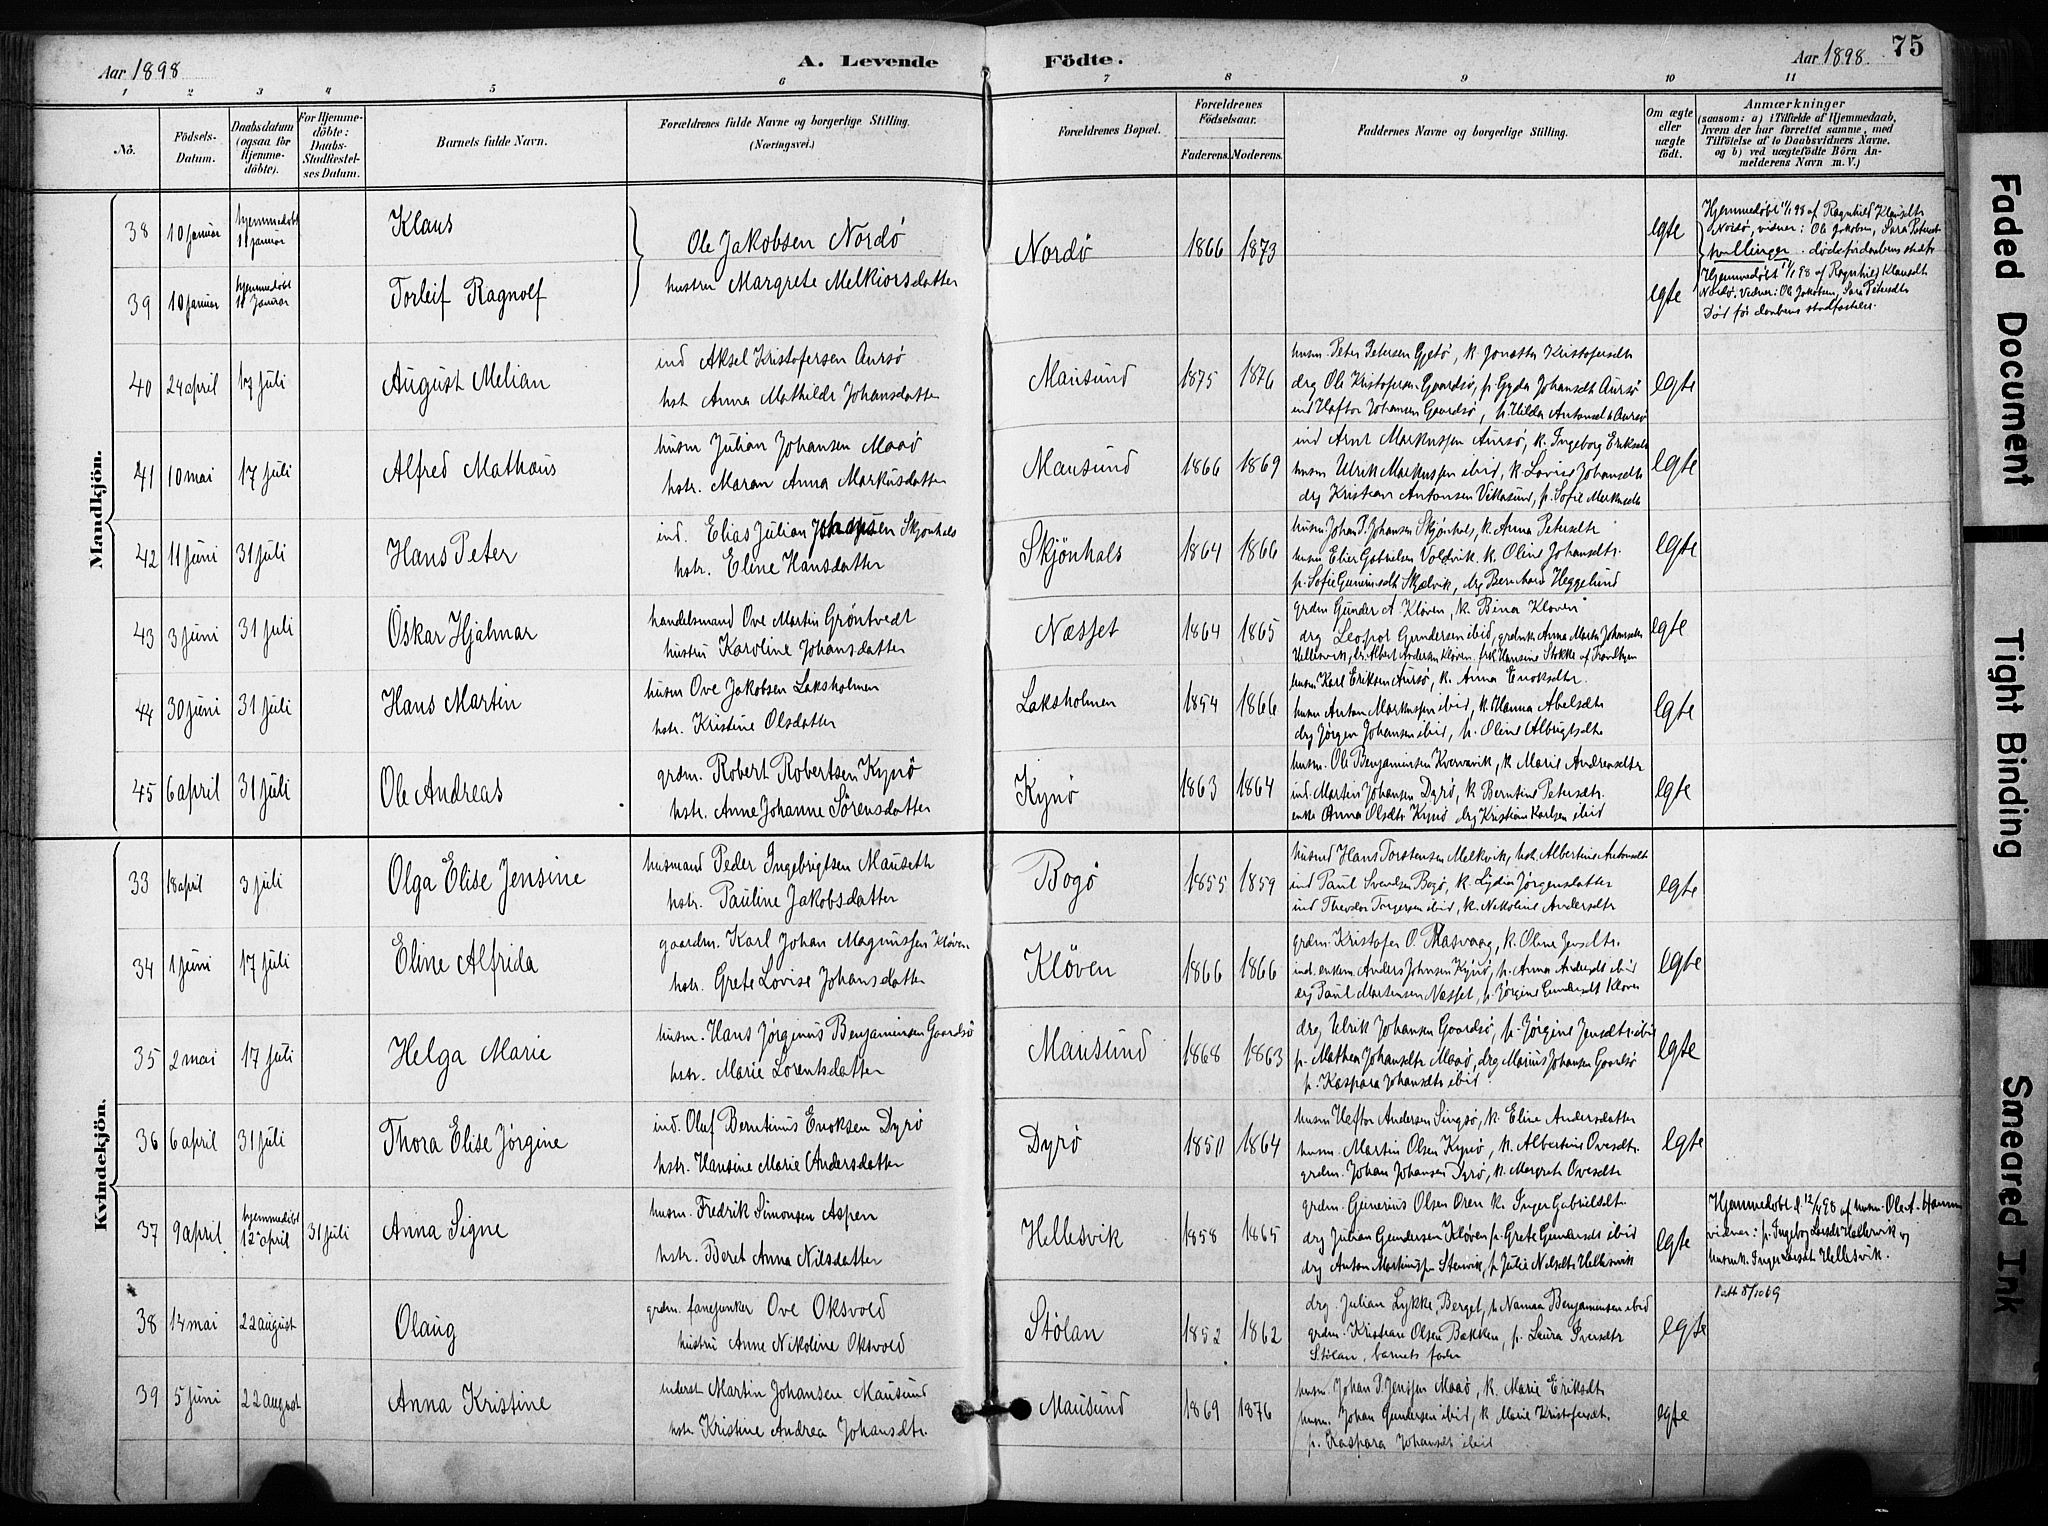 75
Aar 1898
A. Levende Födte.
Aar 1898.
1 2 3 4 5 6 7 8 9 10 11
No.
Födsels-Datum.
Daabsdatum (ogsaa for Hjemme-döbte).
For Hjemme-döbte: Daabs-Stadfæstel-ses Datum.
Barnets fulde Navn.
Forældrenes fulde Navne og borgerlige Stilling.
(Næringsvei.)
Forældrenes Bopæl.
Forældrenes Födselsaar.
Faderens. Moderens.
Faddernes Navne og borgerlige Stilling.
Om ægte eller uægte födt.
Anmærkninger
(saasom: a) i Tilfælde af Hjemmedaab,
hvem der har forrettet samme, med
Tilföielse af to Daabsvidners Navne,
og b) ved uægtefödte Börn An-
melderens Navn m. V.)
Mandkjön.
38 10 januar hjemmedøbt 11 januar Klaus
Ole Jakobsen Nordö
hustru Margrete Melkiorsdatter
Nordö 1866 1873 egte
Hjemmedøbt 11/1 98 af Ragnhild Klausdtr
Nordö, vidner: Ole Jakobsen, Sara Petersdtr
tvillinger. død før daabens stadf.
39 10 januar hjemmedøbt 11 januar Torleif Ragnolf egte
Hjemmedøbt 11/1 98 af Ragnhild Klausdt
Nordö. Vidner: Ole Jakobsen, Sara Petersdtr
Død før daabens stadfæstelse.
40 24 april 17 juli August Melian
ind Aksel Kristofersen Aursö
hst. Anna Mathilde Johansdatter
Mausund 1875 1876
husm. Peter Petersen Gjetö, k. Jonetta Kristofersdtr
drg Ole Kristofersen Gaardsö, p. Gyda Johansdt Aursö
ind Haftor Johansen Gaardsö, p. Hilda Antonsdt Aursö
egte
41 10 mai 17 juli Alfred Mathæus
husm Julian Johansen Maaö
hstr. Maren Anna Markusdatter
Mausund 1866 1869
ind Arnt Markussen Aursö, k. Ingeborg Eriksdt
husm Ulrik Markussen ibid, k. Lovise Johansdtr
drg Kristian Antonsen Vittasund, p. Sofie Markusdt
egte
42 11 juni 31 juli Hans Peter
ind. Elias Julian Johansen Skjönhals
hstr. Eline Hansdatter
Skjönhals 1864 1866
husm. Johan P. Johansen Skjönhals, k. Anna Petersdtr
husm Elier Gabrielsen Voldvik k. Oline Johansdtr.
p. Sofie Gunerusdt Skjelvik, drg Bernhard Heggelund
egte
43 3 juni 31 juli Oskar Hjalmar
handelsmand Ove Martin Gröntvedt
hustru Karoline Johansdatter
Næsset 1864 1865
grdm Gunder A. Klöven, k. Bina Klöven
drg Leopol Gundersen ibid, grdmk Anna Marta Johansdtr
Hellesvik, drg Albert Andersen Klöven. frk Hansine Stokke af Trondhjem
egte
44 30 juni 31 juli Hans Martin
husm Ove Jakobsen Laksholmen
hstr. Kristine Olsdatter
Laksholmen 1854 1866
husm Karl Eriksen Aursö, k. Anna Enoksdtr.
husm Anton Markussen ibid, k. Hanna Abelsdtr
drg Jörgen Johansen ibid, p. Oline Albrigtsdtr
egte
45 6 april 31 juli Ole Andreas
grdm. Robert Robertsen Kynö
hstr. Anne Johanne Sörensdatter
Kynö 1863 1864
husm. Ole Benjaminsen Kvernavik, k. Marie Andreasdtr
ind. Martin Johansen Dyrö, k Berntine Petersdtr.
enke Anna Olsdtr Kynö drg Kristian Karlsen ibid
egte
Kvindekjön.
33 18 april 3 juli Olga Elise Jensine
husmand Peder Ingebrigtsen Mauseth
hstr. Pauline Jakobsdatter
Bogö 1855 1859
husmd Hans Torstensen Melkvik, hst. Albertine Antonsdt
ind Paul Svendsen Bogö, k. Lydia Jörgensdatter
ind Theodor Torgersen ibid, k. Nikoline Andersdtr
egte
34 1 juni 17 juli Eline Alfrida
gaardm. Karl Johan Magnussen Klöven
hstr. Grete Lovise Johansdatter
Klöven 1866 1866
grdm. Kristofer O. Masvaag, k. Oline Jensdtr.
ind. enkem. Anders Johnsen Kynö, p. Anna Andersdt ibid
drg Paul Martensen Næsset, p. Jörgine Gundersdt Klöven
egte
35 2 mai 17 juli Helga Marie
husm. Hans Jörginus Benjaminsen Gaardsö
hstr. Marie Lorentsdatter
Mausund 1868 1863
drg Ulrik Johansen Gaardsö, p. Jörgine Jensdtr ibid
p. Mathea Johansdtr Maaö, drg Marius Johansen Gaardsö
p. Kaspara Johansdtr ibid.
egte
36 6 april 31 juli Thora Elise Jörgine
ind. Oluf Berntinus Enoksen Dyrö
hstr. Hansine Marie Andersdatter
Dyrö 1850 1864
husm Haftor Andersen Singsö, k. Eline Andersdatter
husm. Martin Olsen Kynö, k. Albertine Ovesdtr.
grdm. Johan Johansen Dyrö, k. Margrete Ovesdtr
egte
37 9 april hjemmedöbt 12 april 31 juli Anna Signe
husm. Fredrik Simonsen Aspen
hstr. Beret Anna Nilsdatter
Hellesvik 1858 1865
grdm. Gunerius Olsen Ören k. Inger Gabrielsdt.
drg Julian Gundersen Klöven p. Grete Gundersdt ibid
drg Anton Martinussen Stenvik, p. Julie Nilsdtr Hellesvik
egte
Hjemmedøbt d. 12/4 98 af husm. Ole A. Hammer
vidner: p. Ingeborg Larsdt Hellesvik og
husmk. Inger Larsdt Hellesvik.
38 14 mai 22 august Olaug
grdm. fanejunker Ove Oksvold
hustru Anne Nikoline Oksvold
Stölan 1852 1862
drg. Julian Lykke, Berget, p. Nanna Benjaminsen ibid
grdm. Kristian Olsen Bakken, p. Laura Iversdtr
Stölan, barnets fader
egte
39 5 juni 22 august Anna Kristine
inderst Martin Johansen Mausund
hstr. Kristine Andrea Johansdtr.
Mausund 1869 1876
husm. Johan P. Jenssen Maaö, k. Marie Eriksdtr
husm. Johan Gundersen ibid, k. Marie Kristofersdt.
p. Kaspara Johansdt ibid
egte
Faded Document
Tight Binding
Smeared Ink